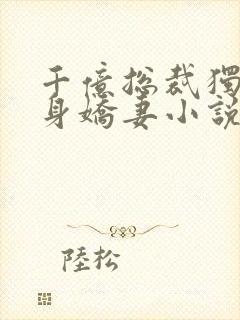 千億総裁獨
身嬌妻小説
陸松